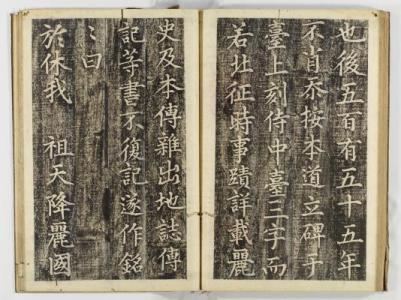 也後五百有五十五年
不肖忝按本道立碑于
臺上刻侍中臺三字而
若北征時事蹟詳載麗
史及本傳雜出地誌傳
記等書不復記遂作銘
銘曰
於休我　祖天降麗國